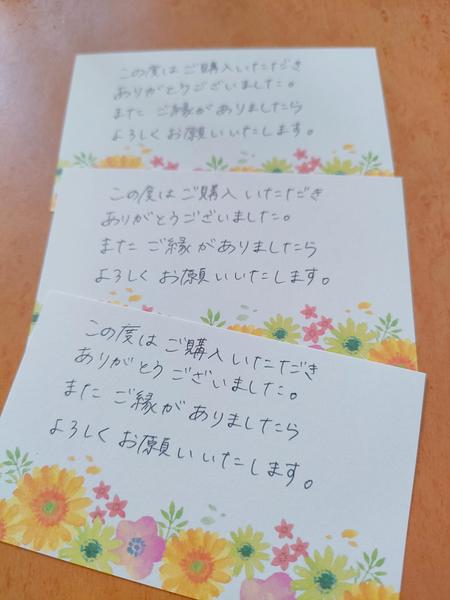 この度は ご購入いただき
ありがとうございました。
また ご縁が ありましたら
よろしく お願いいたします。
この度は ご購入 いただき
ありがとうございました。
また ご縁が ありましたら
よろしく お願いいたします。
この度は ご購入 いただき
ありがとう ございました。
また ご縁が ありましたら
よろしく お願いいたします。